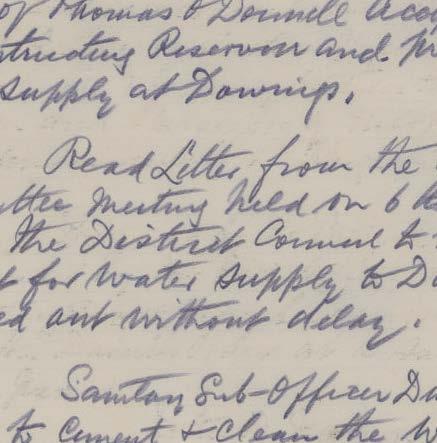 of Thomas O'Donnell
structing Reservoir and
supply at Downings.
Read Letter from the
ttee Meeting held on 6
the District Council to
t for Water supply to D
ed out without delay.
Sanitary Sub-Officer
to Cement & Clean the W